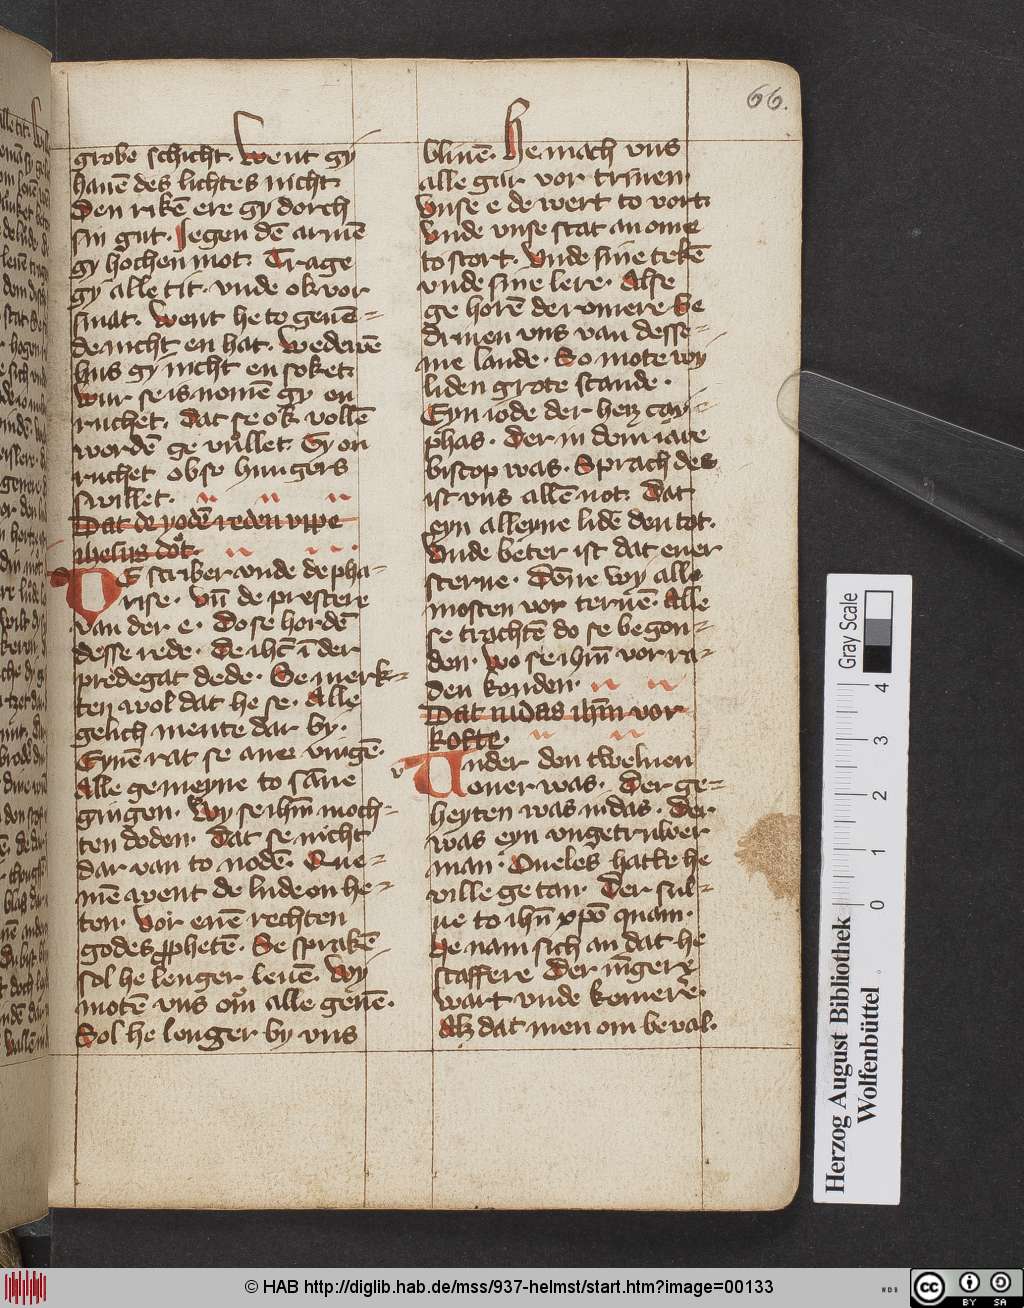 66.
grobe schicht. Went gy
hauē des lichtes nicht
Den rikē ere gy dorch
sin gut. Jegen dē armē
gy hochen mot. Trage
gy alle tit. vnde ok vor
smat. Went he to geuē=
de nicht en hat. wedewē
hus gy nicht en soket
wur se is nomē gy en
ruchet. Dat se ok vollē
werdē ge vullet. Gy en
ruchet obse hungers
swillet.
Dat de yodē reden vppe
ihesus dot.
DE scriber vnde de pha-
rise. Vn̄ de prestere
van der e. Do se hordē
desse rede. De ihc̄ ī der
predegat dede. Se merk=
ten wol dat he se. Alle
gelich mente dar by.
Eynē rat se ane vingē.
Alle gemeyne to sāne
gingen. Wy se ihm̄ moch-
ten doden. Dat se nicht
dar van to nodē. Que=
mē went de lude en he=
ten. Vor enē rechten
godes prophetē. Se sprakē
sol he lenger leuē. Wy
motē vns om̄ alle geuē.
Sol he lenger by vns
bliuē. He mach vns
alle gar vor triuen.
Vnse e de wert to vort.
Vnde vnse stat an ome
to stort. Vnde sine tekē
vnde sine lere. Alse
ge horē de romere. Se
driuen vns van desse=
me lande. So mote wy
liden grote scande.
Eyn iode der hetz cay=
phas. Der in dem iare
biscop was. Sprach des
ist vns allē not. Dat
eyn alleyne lide den tot.
Vnde beter ist dat ener
sterue. Dēne wy alle
mosten vor teruē. Alle
se trachtē do se begon=
den. Wo se ihm̄ vor ra=
den konden.
Dat iudas ihm̄ vor
kofte.
v
Under den tweluen
eyner was. Der ge=
heyten was iudas. Der
was eyn vngetruwer
man. Oueles hatte he
ville ge tan. Der sul=
ue to ihm̄ xpō quam.
He nam sich an dat he
scaffere Der iu̅gere
wart vnde kemere.
Alz dat men om beual.
Herzog August Bibliothek
Wolfenbüttel
Gray Scale
0 1 2 3 4
© HAB http://diglib.hab.de/mss/937-helmst/start.htm?image=00133
WDB
cc BY SA